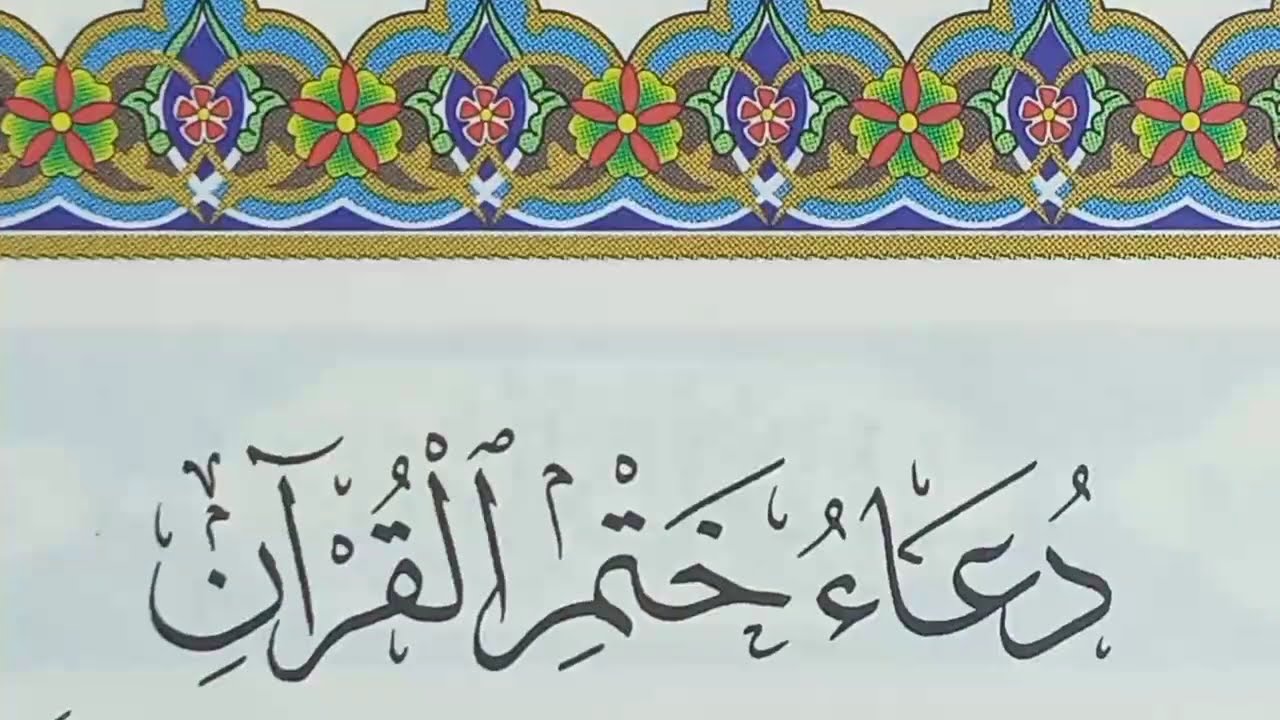 دُعَاءُ خَتْمِ ٱلْقُرْآنِ